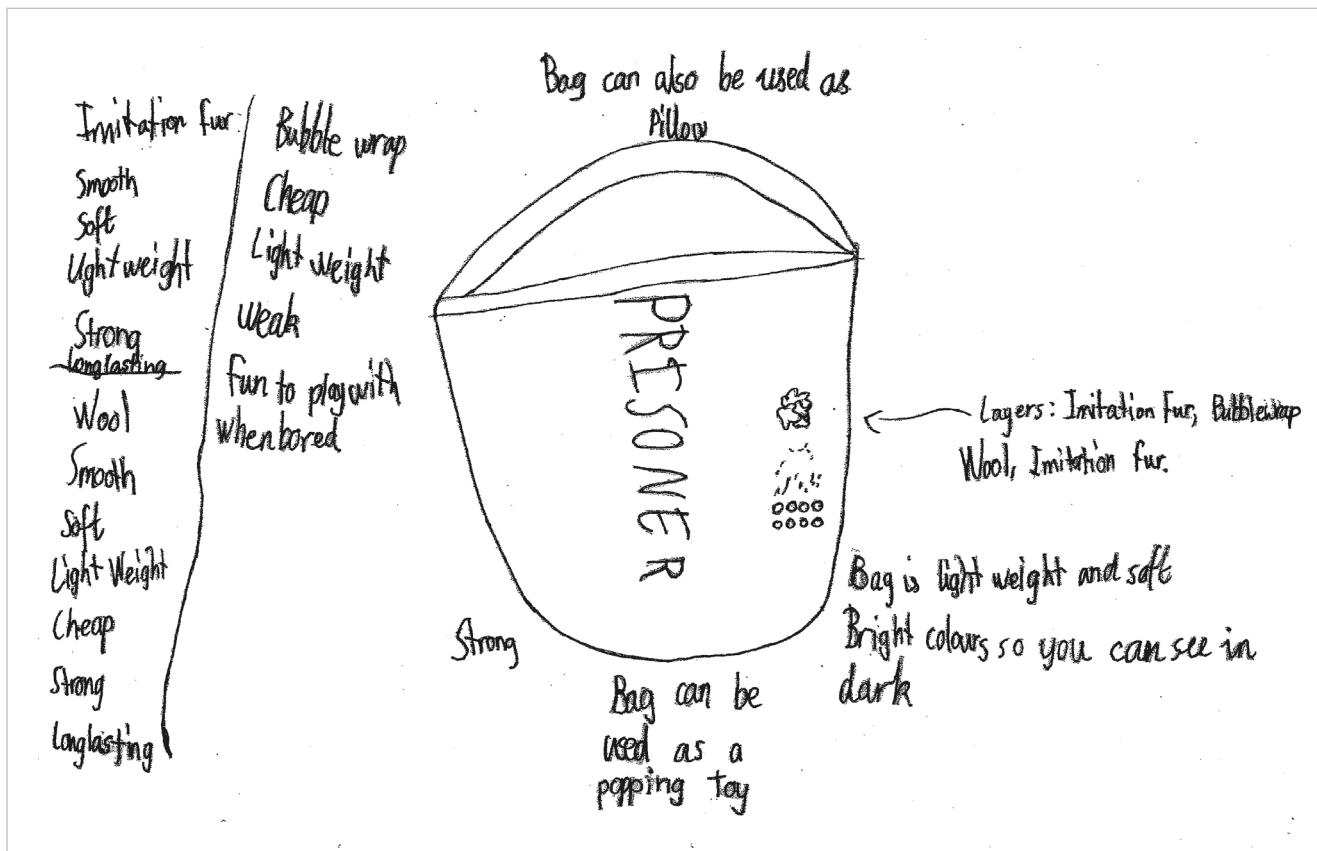 Imitation fur:
Smooth
Soft
Light weight
Strong
Longlasting
Wool
Smooth
Soft
Light Weight
Cheap
Strong
Longlasting
Bubble wrap
Cheap
Light weight
weak
fun to play with
when bored
Bag can also be used as
Pillow
PRISONER
Layers: Imitation Fur, Bubblewrap
Wool, Imitation fur.
Strong
Bag is light weight and soft
Bright colours so you can see in
dark
Bag can be
used as a
popping toy